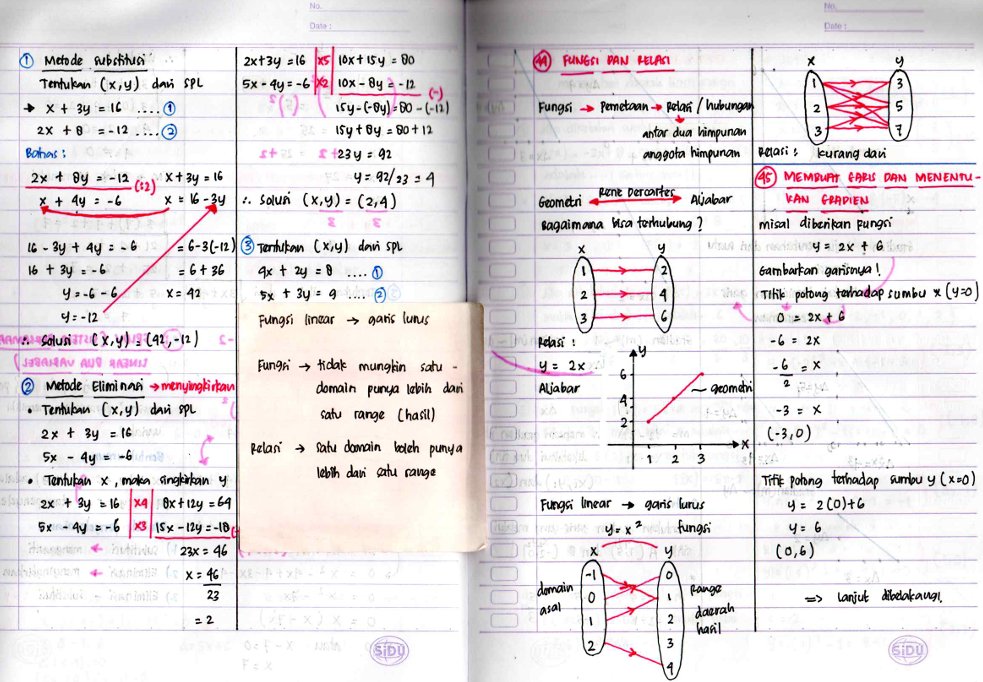 No.
Date :
① Metode substitusi
Tentukan (x,y) dari SPL
→ x + 3y = 16 .... ①
2x + 8 = -12 .... ②
Bahas :
2x + 8y = -12 (:2)
x + 4y = -6
x + 3y = 16
x = 16 - 3y
16 - 3y + 4y = -6
16 + 3y = -6
y = -6 - 6
y = -12
= 6-3(-12)
= 6 + 36
x = 42
∴ Solusi (x,y) = (42, -12)
② Metode Eliminasi → menyingkirkan
• Tentukan (x,y) dari SPL
2x + 3y = 16
5x - 4y = -6
• Tentukan x, maka singkirkan y
2x + 3y = 16 | x4 | 8x + 12y = 64
5x - 4y = -6 | x3 | 15x - 12y = -18
23x = 46
x = 46
23
= 2
2x + 3y = 16 | x5 | 10x + 15y = 80
5x - 4y = -6 | x2 | 10x - 8y = -12 (-)
15y - (-8y) = 80 - (-12)
15y + 8y = 80 + 12
23y = 92
y = 92/23 = 4
∴ Solusi (x,y) = (2,4)
③ Tentukan (x,y) dari SPL
4x + 2y = 8 .... ①
5x + 3y = 9 .... ②
Fungsi linear → garis lurus
Fungsi → tidak mungkin satu
domain punya lebih dari
satu range (hasil)
Relasi → satu domain boleh punya
lebih dari satu range
SiDU
No.
Date :
44 FUNGSI DAN RELASI
Fungsi → Pemetaan → Relasi / hubungan
antar dua himpunan
anggota himpunan
Rene Dercartes
Geometri ↔ Aljabar
Bagaimana bisa terhubung ?
x y
1 2
2 4
3 6
Relasi :
y = 2x
Aljabar
y
6
4
2
1 2 3
x
geometri
Fungsi linear → garis lurus
y = x² fungsi
x y
-1 0
0 1
1 2
2 3
4
domain
asal
Range
daerah
hasil
x y
1 3
2 5
3 7
Relasi : kurang dari
45 MEMBUAT GARIS DAN MENENTU-
KAN GRADIEN
misal diberikan fungsi
y = 2x + 6
Gambarkan garisnya !
Titik potong terhadap sumbu x (y=0)
0 = 2x + 6
-6 = 2x
-6 = x
2
-3 = x
(-3,0)
Titik potong terhadap sumbu y (x=0)
y = 2(0)+6
y = 6
(0,6)
=> lanjut dibelakang.
SiDU